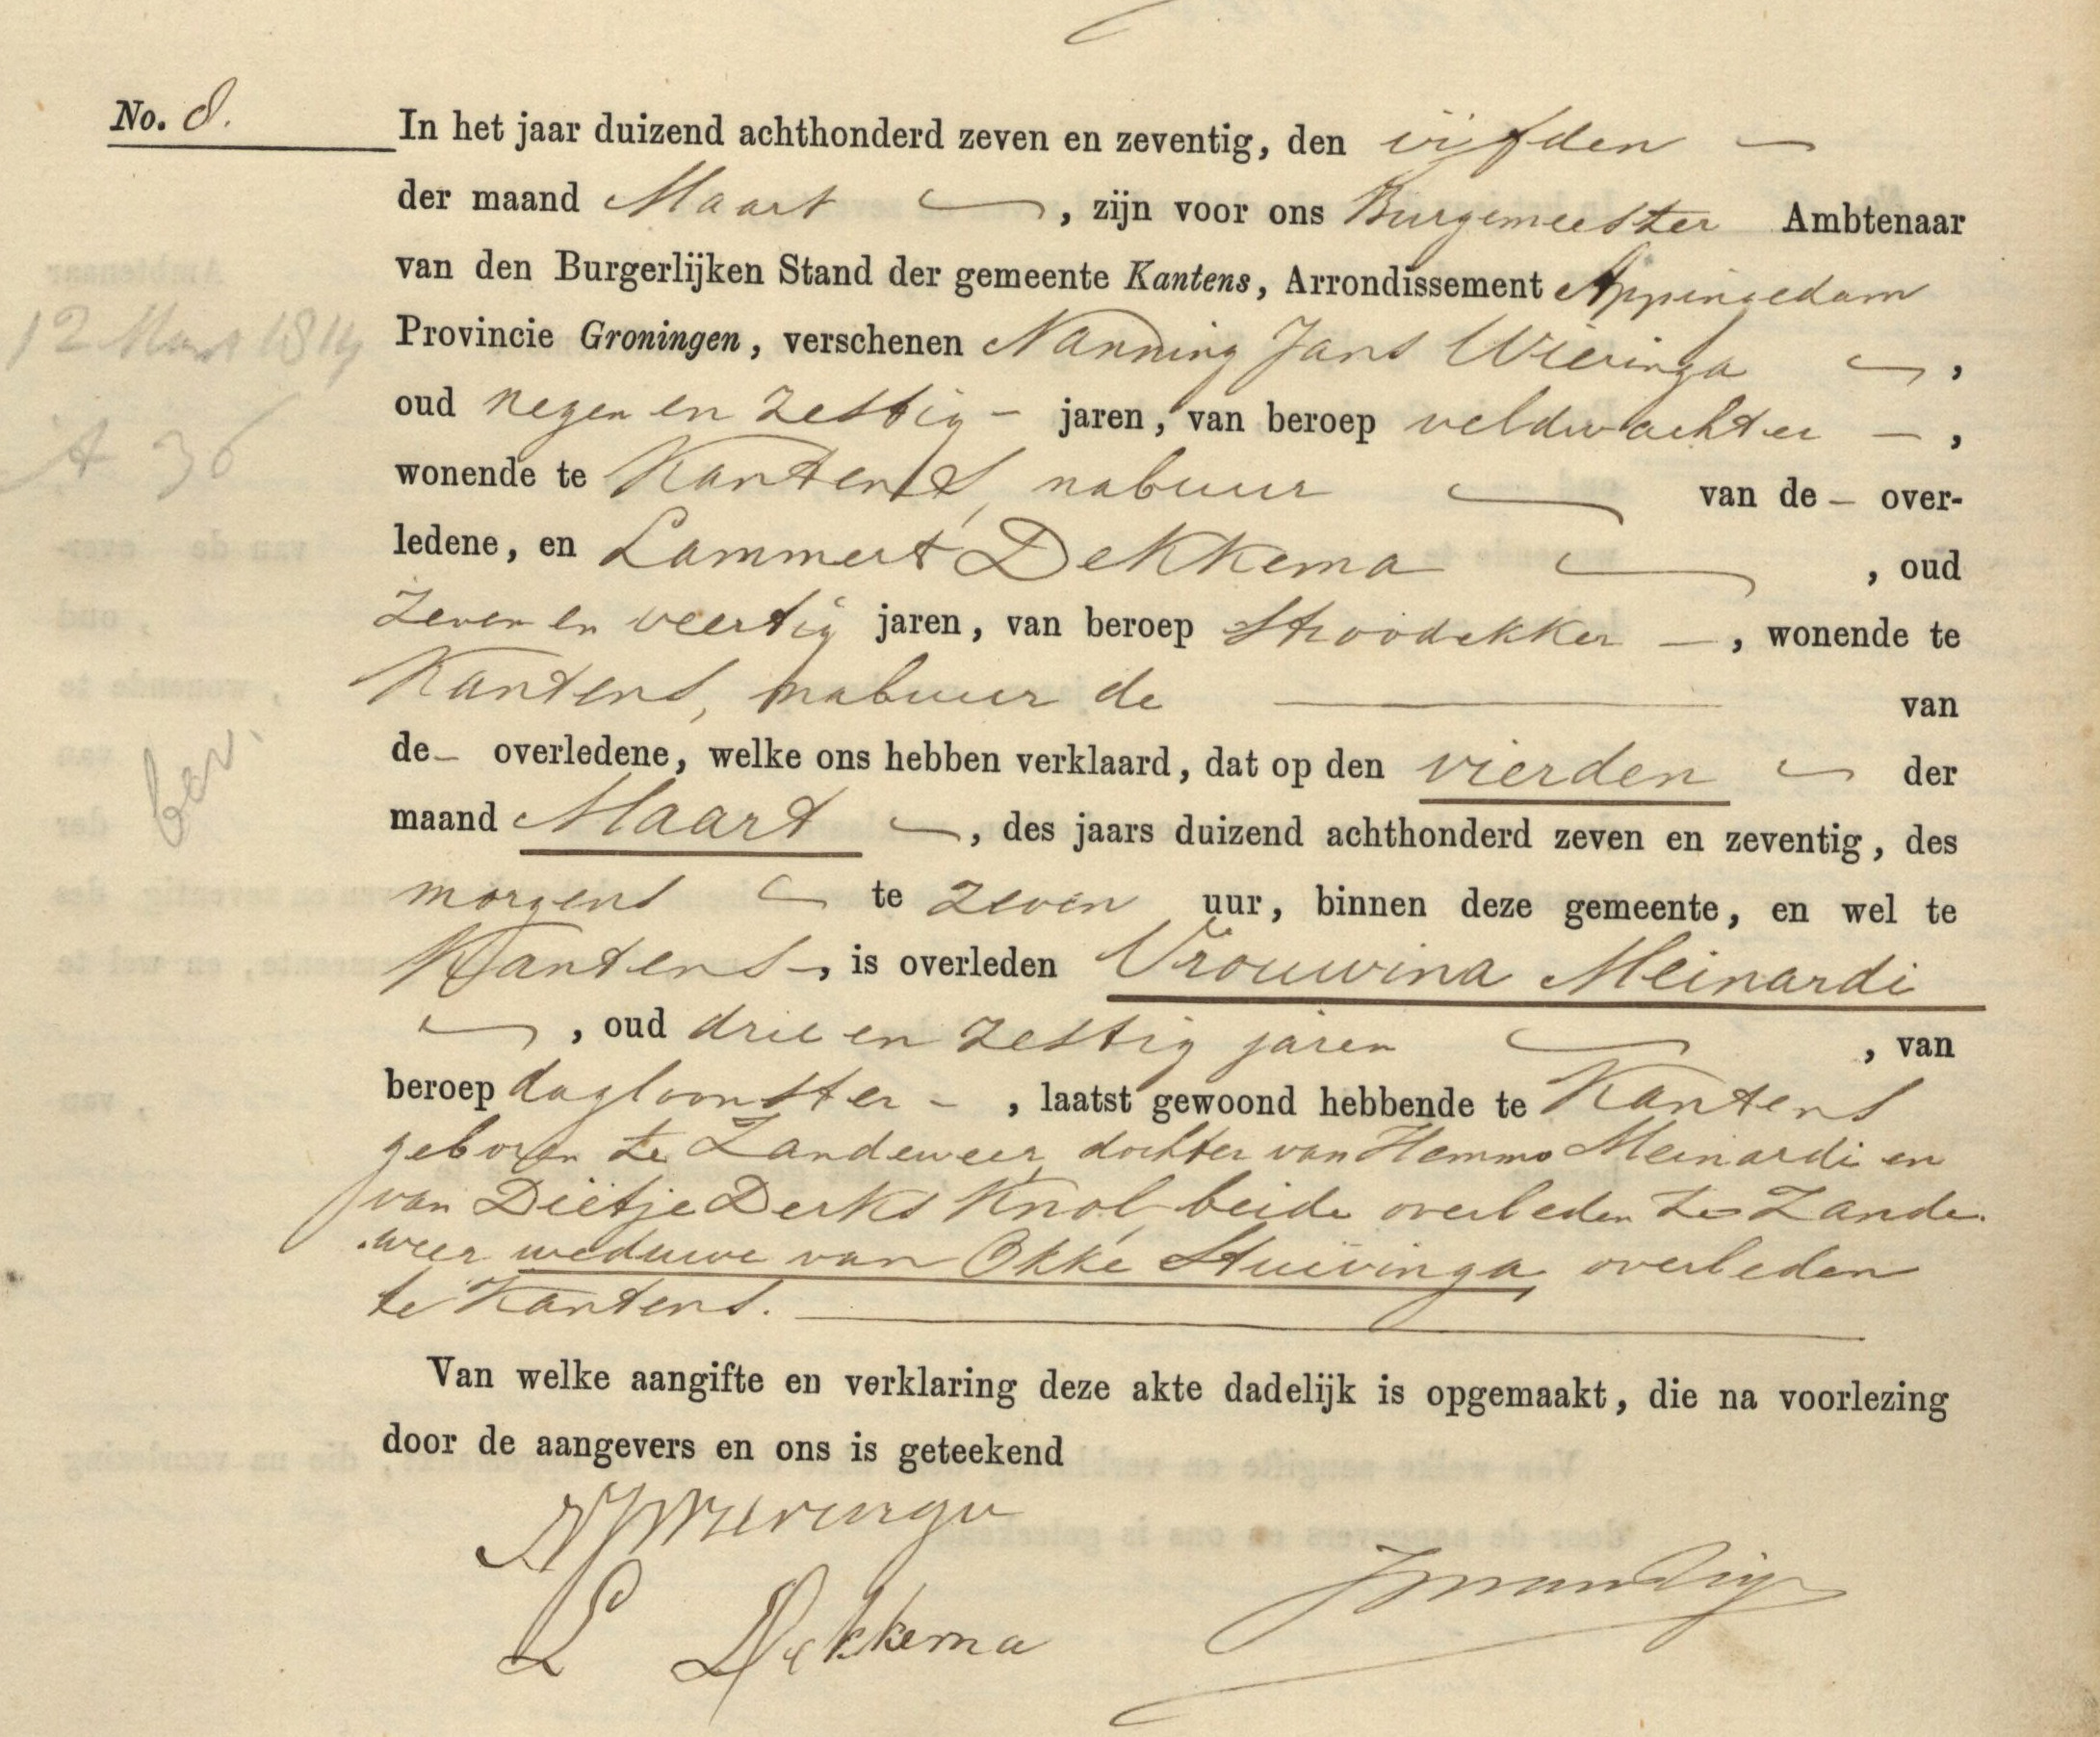 No. 8.
In het jaar duizend achthonderd zeven en zeventig, den vijfden —
der maand Maart —, zijn voor ons Burgemeester Ambtenaar
van den Burgerlijken Stand der gemeente Kantens, Arrondissement Appingedam
Provincie Groningen, verschenen Nanning Jans Wieringa —,
oud negen en zestig – jaren, van beroep veldwachter —,
wonende te Kantens, nabuur — van de – over-
ledene, en Lammert Dekkema —, oud
zeven en veertig jaren, van beroep Stroodekker —, wonende te
Kantens, nabuur de — van
de – overledene, welke ons hebben verklaard, dat op den vierden — der
maand Maart —, des jaars duizend achthonderd zeven en zeventig, des
morgens — te zeven uur, binnen deze gemeente, en wel te
Kantens –, is overleden Vrouwina Meinardi
—, oud drie en zestig jaren —, van
beroep dagloonster –, laatst gewoond hebbende te Kantens
geboren te Zandeweer, dochter van Hemmo Meinardi en
van Dietje Derks Knol, beide overleden te Zande-
weer weduwe van Okke Stuivinga, overleden
te Kantens. —
Van welke aangifte en verklaring deze akte dadelijk is opgemaakt, die na voorlezing
door de aangevers en ons is geteekend
NJWieringa
L Dekkema
12 Mars 1814
A 36